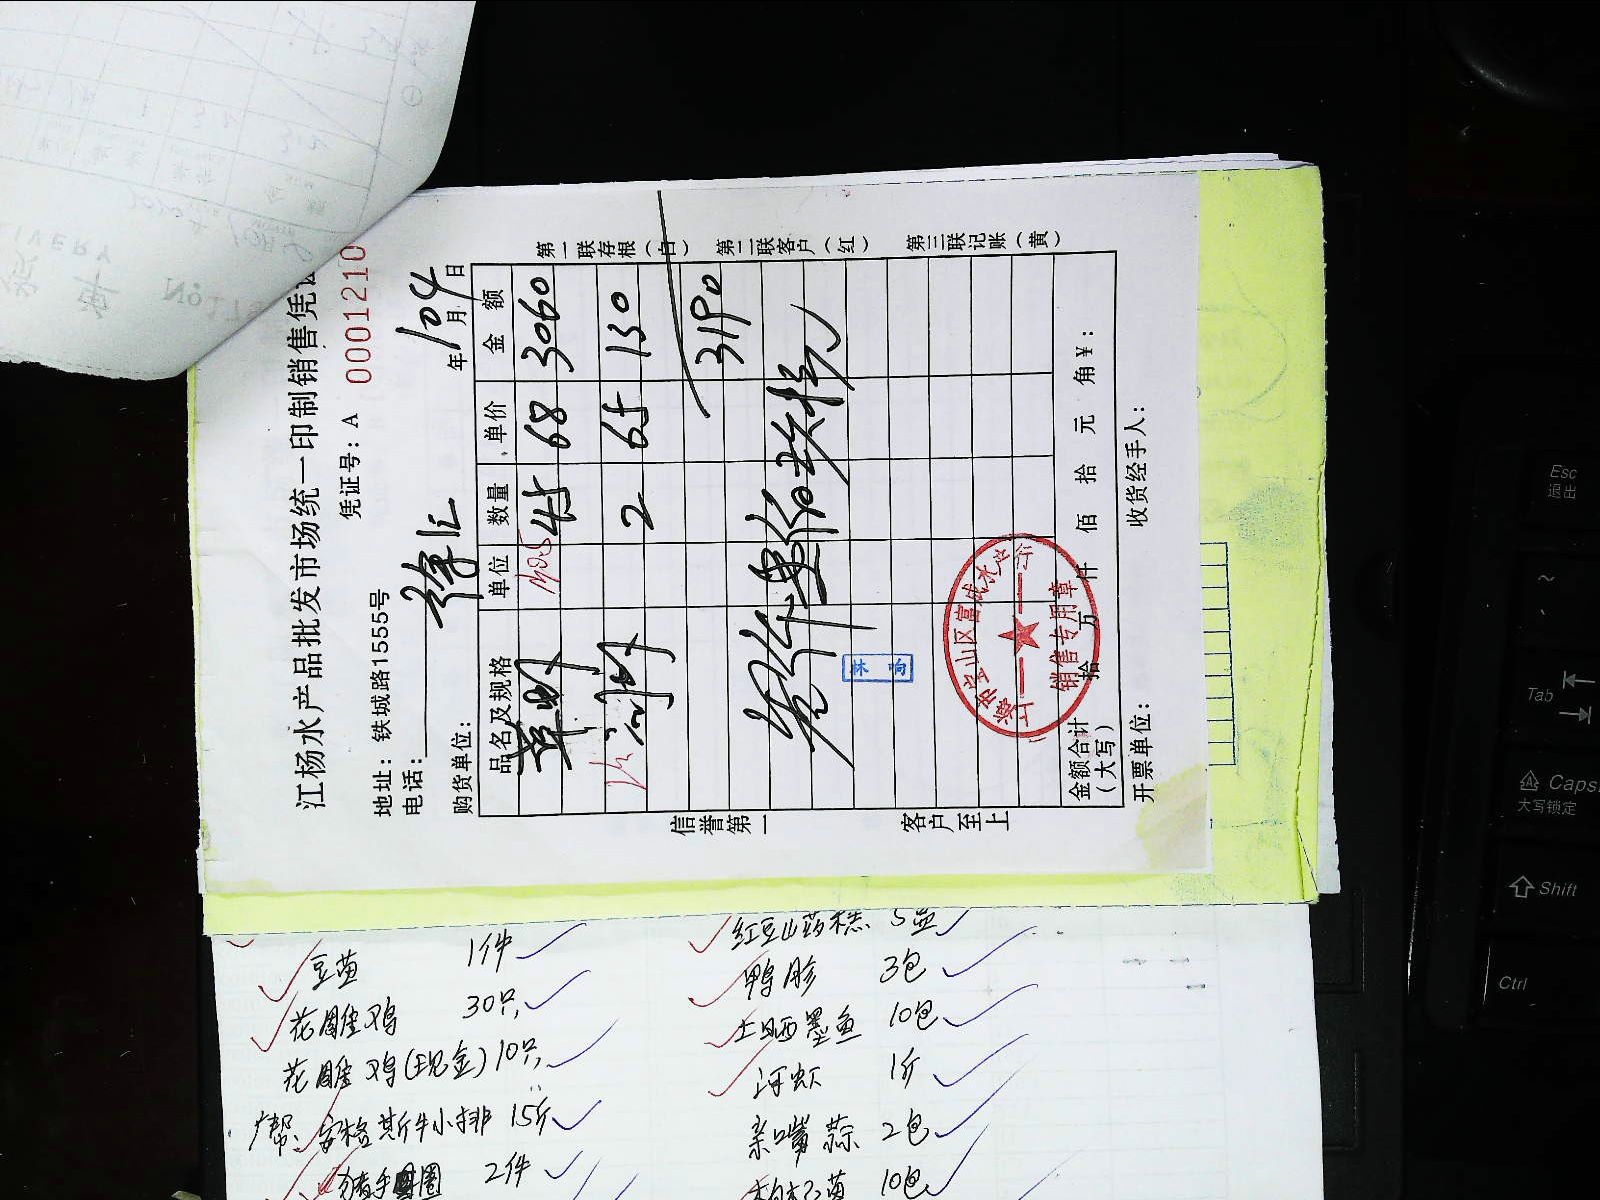 江杨水产品批发市场统一印制销售凭证
凭证号：A 0001210
地址：铁城路15555号
电话：
徐汇
购货单位：
年 月 日
10 4
品名及规格 单位 数量 单价 金额
草虾 45 68 3060
河虾 2 65 130
3190
信誉第一
客户至上
林
上海市宝山区富成水产行
销售专用章
金额合计（大写） 拾 万 仟 佰 拾 元 角 ￥：
开票单位： 收货经手人：
第一联存根（白） 第二联客户（红） 第三联记账（黄）
豆苗 1件
花雕鸡 30只
花雕鸡(现金) 10只
帮、安格斯牛小排 15斤
猪手圈 2件
红豆山药糕 5盒
鸭胗 3包
土晒墨鱼 10包
河虾 1斤
亲嘴蒜 2包
10包
Esc
退出
~
Tab
Caps
大写锁定
Shift
Ctrl